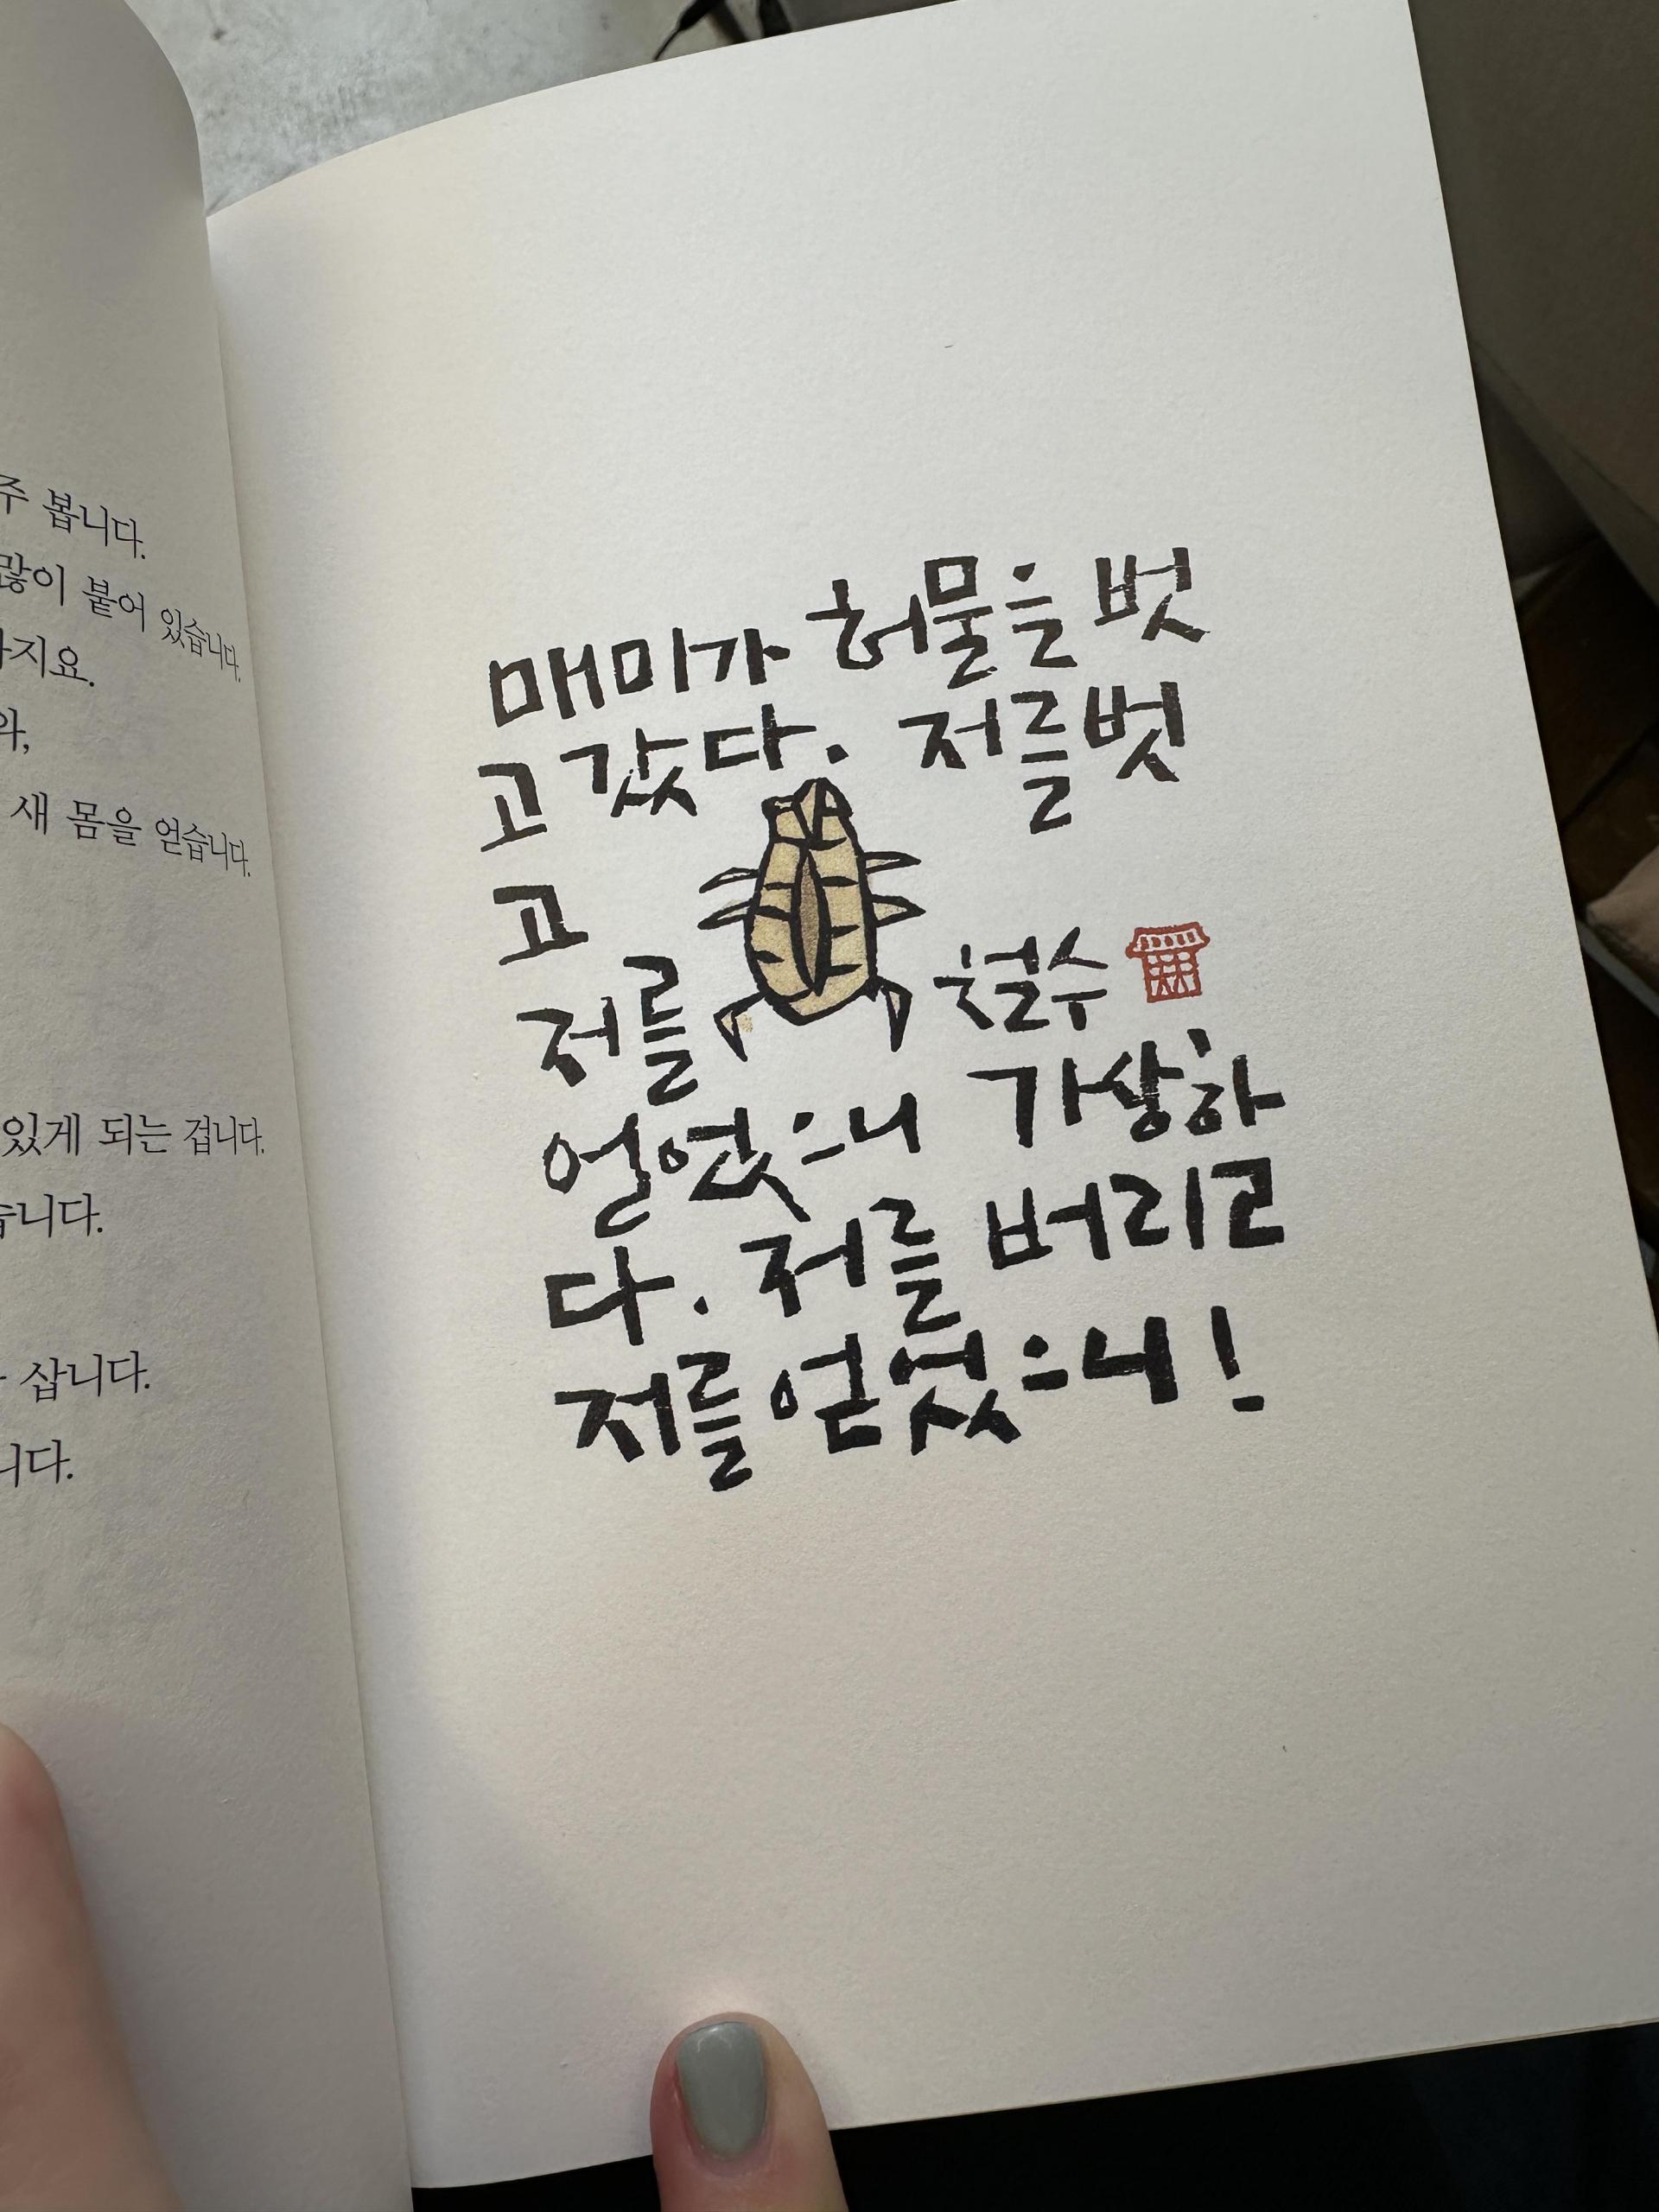 주 봅니다.
많이 붙어 있습니다.
지요.
와,
새 몸을 얻습니다.
있게 되는 겁니다.
습니다.
삽니다.
니다.
매미가 허물을 벗
고 갔다. 저를 벗
고
저를
철수
얻었으니 가상하
다. 저를 버리고
저를 얻었으니!